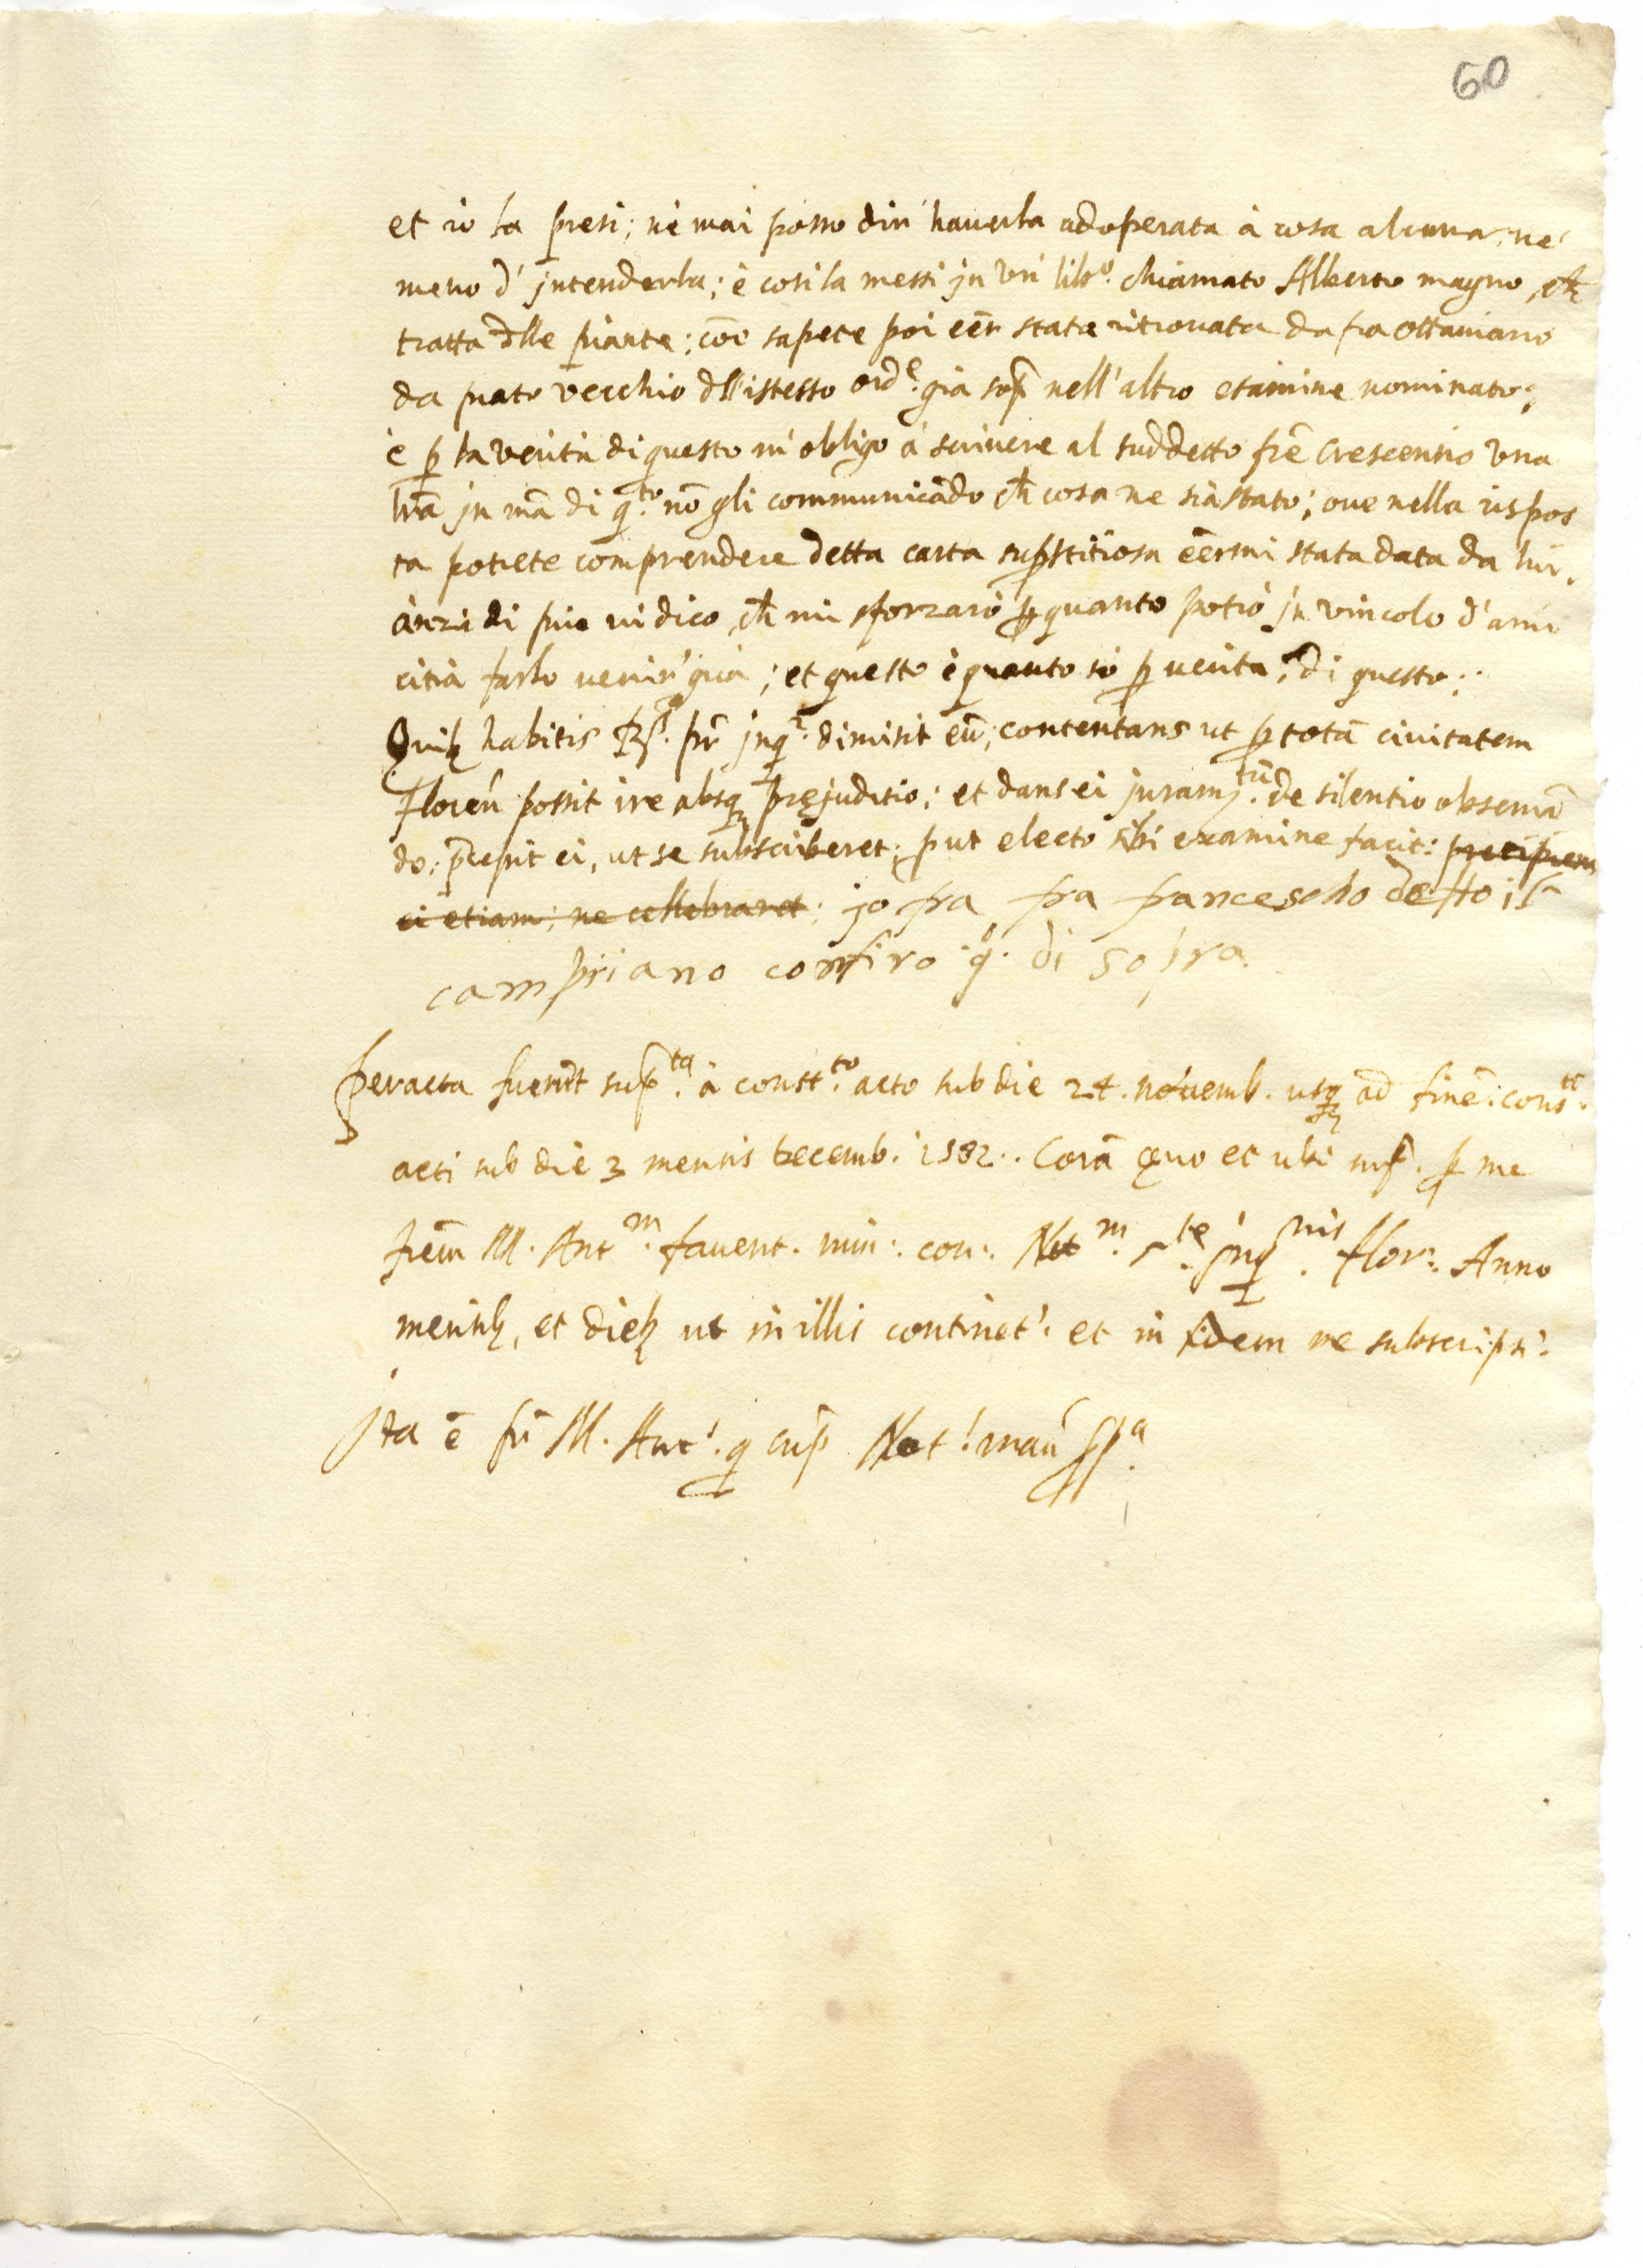 60
et io la presi; nè mai posso dir' haverla adoperata à cosa alcuna; ne'
meno d' jntenderla; è cosi la messi jn un' lib.º chiamato Alberto magno, ch̄
tratta dlle piante; coē sapete poi eēr stata ritrouata da fra ottauiano
da prato vecchio dll'istesso ord.e già sop̄ nell'altro esamine nominato;
è p̱ la verità di questo m' obligo à scriuere al suddetto fr̄e Crescentio vna
lr̄a jn mā di q.to nō gli communicādo ch̄ cosa ne sia stato; oue nella rispos
ta potrete comprendere detta carta sup̱stitiosa eērmi stata data da lui.
ànzi di piu ui dico, ch̄ mi sforzarò p̱ quanto potrò jn vincolo d'ami
citia farlo uenir' quà; et questo è quanto sò p̱ uerita, di questo;
Quib; habitis R.s pr̄ jnq.r dimisit eū; contentans ut p̱ totā ciuitatem
Floren̄ possit ire absq; pręjuditio; et dans ei juram.tū de silentio obseruā
do; p̄cepit ei, ut se subscriberet; put electo sibi examine facit: precipiens
ei etiam; ne cellebraret; jo fra fra francescho detto il
campriano confiro q.º di sopra
Peracta fuerūt sup.ta à constt.to acto sub die 24. nouemb. usq; ad finē: const.ti
acti sub die 3 mensis decemb. 1582.. Corā quo et ubi sup̄. p̱ me
fr̄em M. Ant.m fauent. min: con: Not.m s.te jnq.nis flor: Anno
mensib;, et dieb; ut in illis continet.r et in fidem me subscripsi.
jta ē fr̄ M. Ant.s q sup̄ Not.s man̄ pp.a